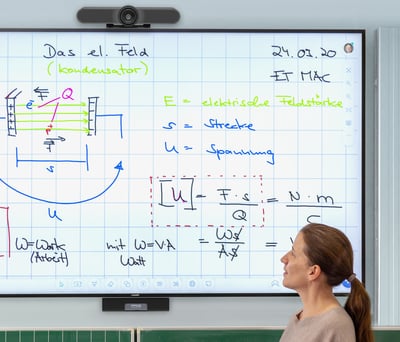 Das el. Feld
24.03.20
(kondensator)
ET MAC
F
Q
e-
E = elektrische Feldstärke
s = Strecke
F
s
U = Spannung
[U] = F·s / Q = N·m / C
U
W=Work
(Arbeit)
mit W=V·A
Watt
= Ws / As =